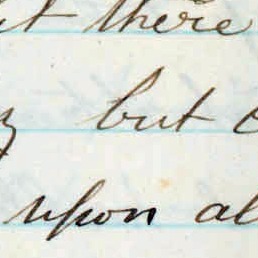 there
but
upon al